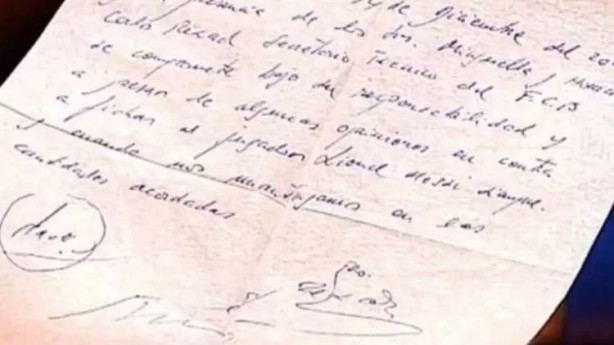 de Diciembre del 20
presencia de los Srs. Minguella y Horac
Carles Rexach Secretario Técnico del F.C.B
se compromete bajo su responsabilidad y
a pesar de algunas opiniones en contra
a fichar al jugador Lionel Messi siempre
y cuando nos mantengamos en las
cantidades acordadas